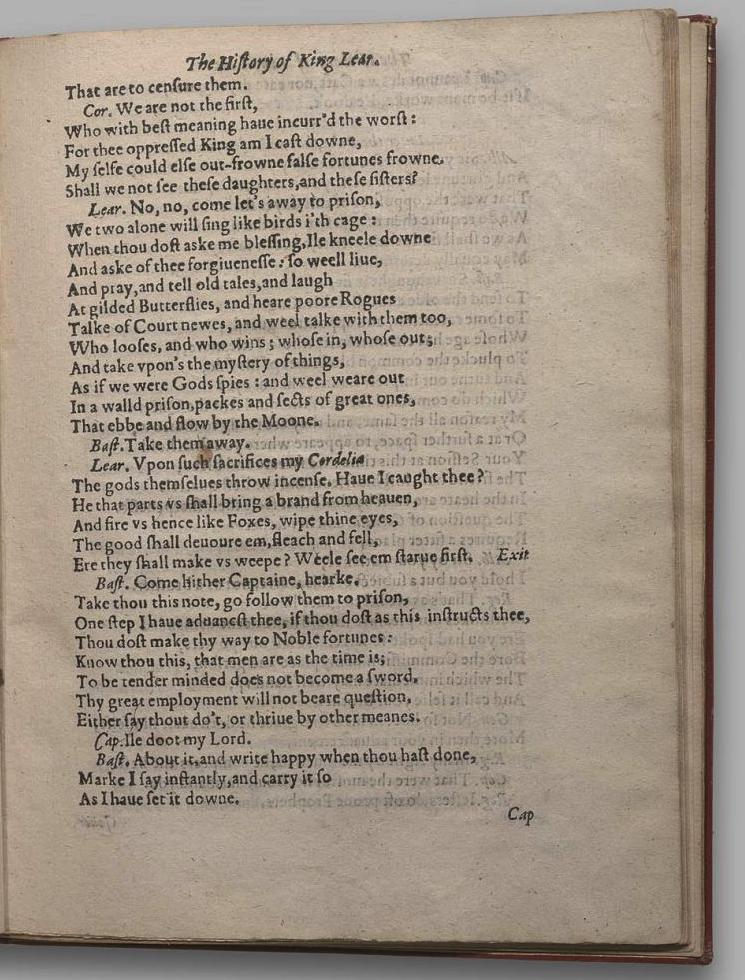 The Hiſtory of King Lear.
That are to cenſure them.
Cor. We are not the firſt,
Who with beſt meaning haue incurr'd the worſt:
For thee oppreſſed King am I caſt downe,
My ſelfe could elſe out-frowne falſe fortunes frowne.
Shall we not ſee theſe daughters,and theſe ſiſters?
Lear. No, no, come let's away to priſon,
We two alone will ſing like birds i'th cage:
When thou doſt aske me bleſſing,Ile kneele downe
And aske of thee forgiueneſſe: ſo weell liue,
And pray,and tell old tales,and laugh
At gilded Butterflies, and heare poore Rogues
Talke of Court newes, and weel talke with them too,
Who looſes, and who wins; whoſe in, whoſe out;
And take vpon's the myſtery of things,
As if we were Gods ſpies: and weel weare out
In a walld priſon,packes and ſects of great ones,
That ebbe and flow by the Moone.
Baſt. Take them away.
Lear. Vpon ſuch ſacrifices my Cordelia
The gods themſelues throw incenſe. Haue I caught thee?
He that parts vs ſhall bring a brand from heauen,
And fire vs hence like Foxes, wipe thine eyes,
The good ſhall deuoure em,fleach and fell,
Ere they ſhall make vs weepe? Weele ſee em ſtarue firſt. Exit
Baſt. Come hither Captaine, hearke.
Take thou this note, go follow them to priſon,
One ſtep I haue aduancſt thee, if thou doſt as this inſtructs thee,
Thou doſt make thy way to Noble fortunes:
Know thou this, that men are as the time is;
To be tender minded does not become a ſword.
Thy great employment will not beare queſtion,
Either ſay thout do't, or thriue by other meanes.
Cap. Ile doot my Lord.
Baſt. About it,and write happy when thou haſt done,
Marke I ſay inſtantly,and carry it ſo
As I haue ſet it downe.
Cap